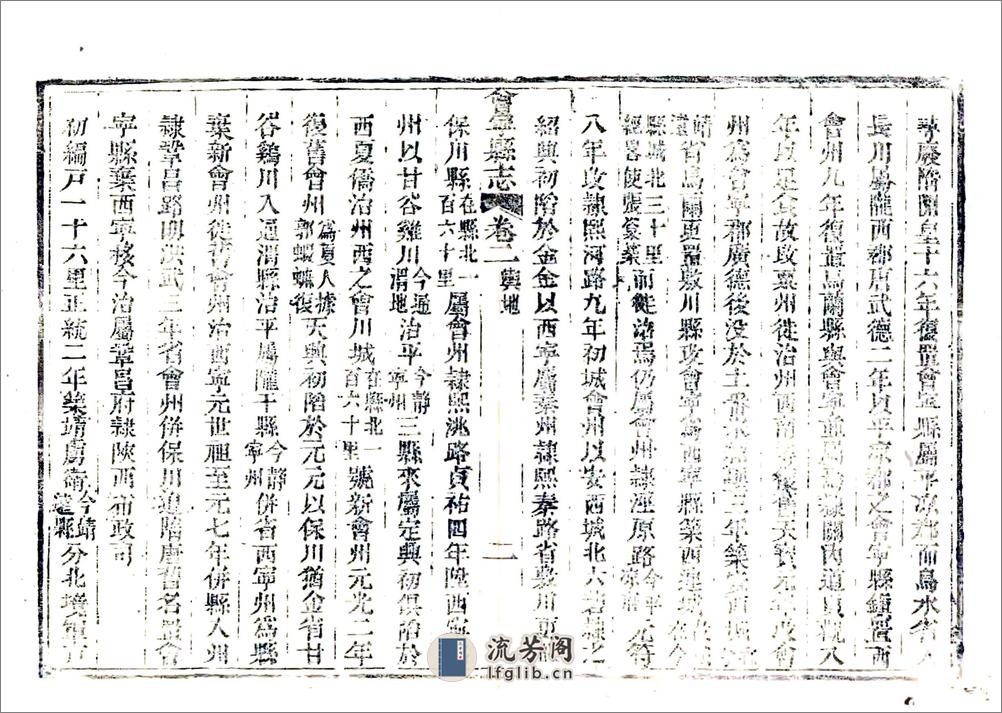 尋廢隋開皇十六年復置會寧縣屬平涼郡而烏水省入
長川屬隴西郡唐武德二年以平涼郡之會寧縣鎮置西
會州九年復置烏蘭縣與會寧並屬焉隸關內道貞觀八
年以足食故改粟州徙治州西南 天寶元年改會
州為會寧郡廣德後沒於土番 三年築
靖 省烏蘭更置敷川縣改會寧為西寧縣築西 城
縣城北三十里
經畧使張 築 而徙治焉仍屬會州隸涇原路 元符
八年改隸熙河路九年初城會州以安西城北六砦隸之
紹興初陷於金金以西寧屬秦州隸熙秦路省敷川更
會寧縣志 卷二 輿地 二
保川縣在縣北一百六十里屬會州隸熙洮路貞祐四年陞西寧
州以甘谷雞川今通渭地治平今靜寧州三縣來屬定興初俱陷於
西夏僑治州西之會川城在縣北一百六十里號新會州元光二年
復舊會州為夏人據郭蝦蟆復天興初陷於元元以保川猶金省甘
谷鷄川入通渭縣治平屬隴干縣今靜寧州併省西寧州為縣
棄新會州徙舊會州治西寧元世祖至元七年併縣入州
隸鞏昌路明洪武三年省會州併保川迫隋唐舊名置會
寧縣棄西寧移今治屬鞏昌府隸陝西布政司
初編戸一十六里正統二年築靖虜衛今靖遠縣分北境軍戸
流芳阁
lfglib.cn